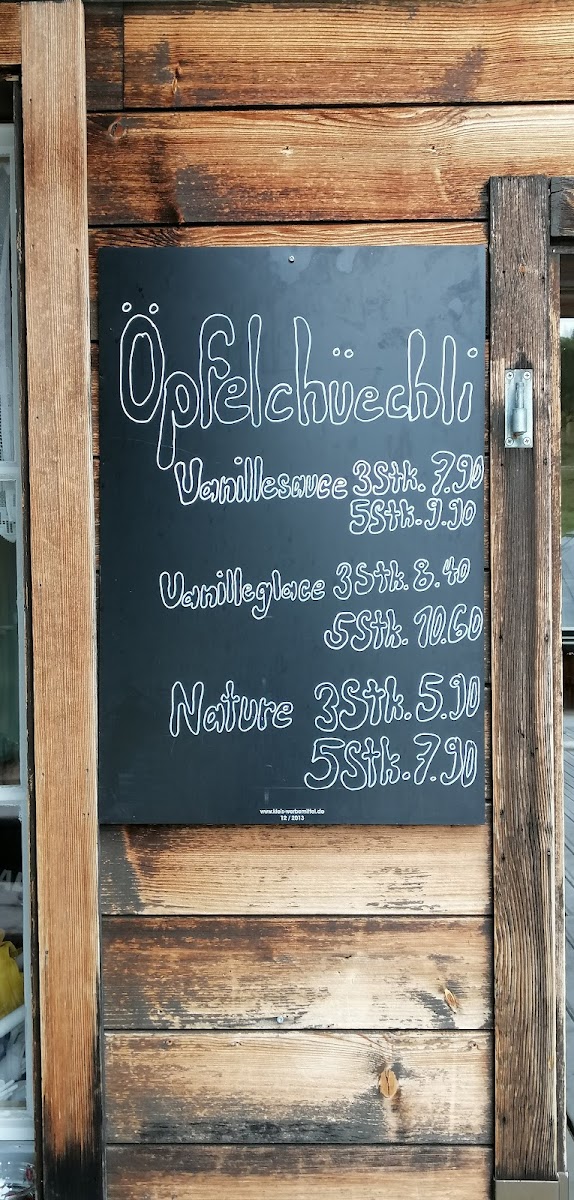 Öpfelchüechli
Vanillesauce 3Stk. 7.90
5Stk. 9.90
Vanilleglace 3Stk. 8.40
5Stk. 10.60
Nature 3Stk. 5.90
5Stk. 7.90
www.klais-werbemittel.de
12 / 2013